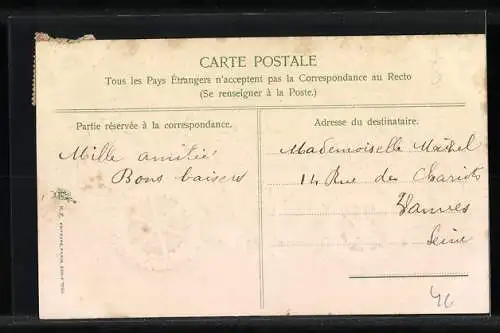 CARTE POSTALE
Tous les Pays Étrangers n'acceptent pas la Correspondance au Recto
(Se renseigner à la Poste.)
Partie réservée à la correspondance.
Mille amitié
Bons baisers
Adresse du destinataire.
Mademoiselle Michel
14 Rue des Chariots
Vanves
Seine
46